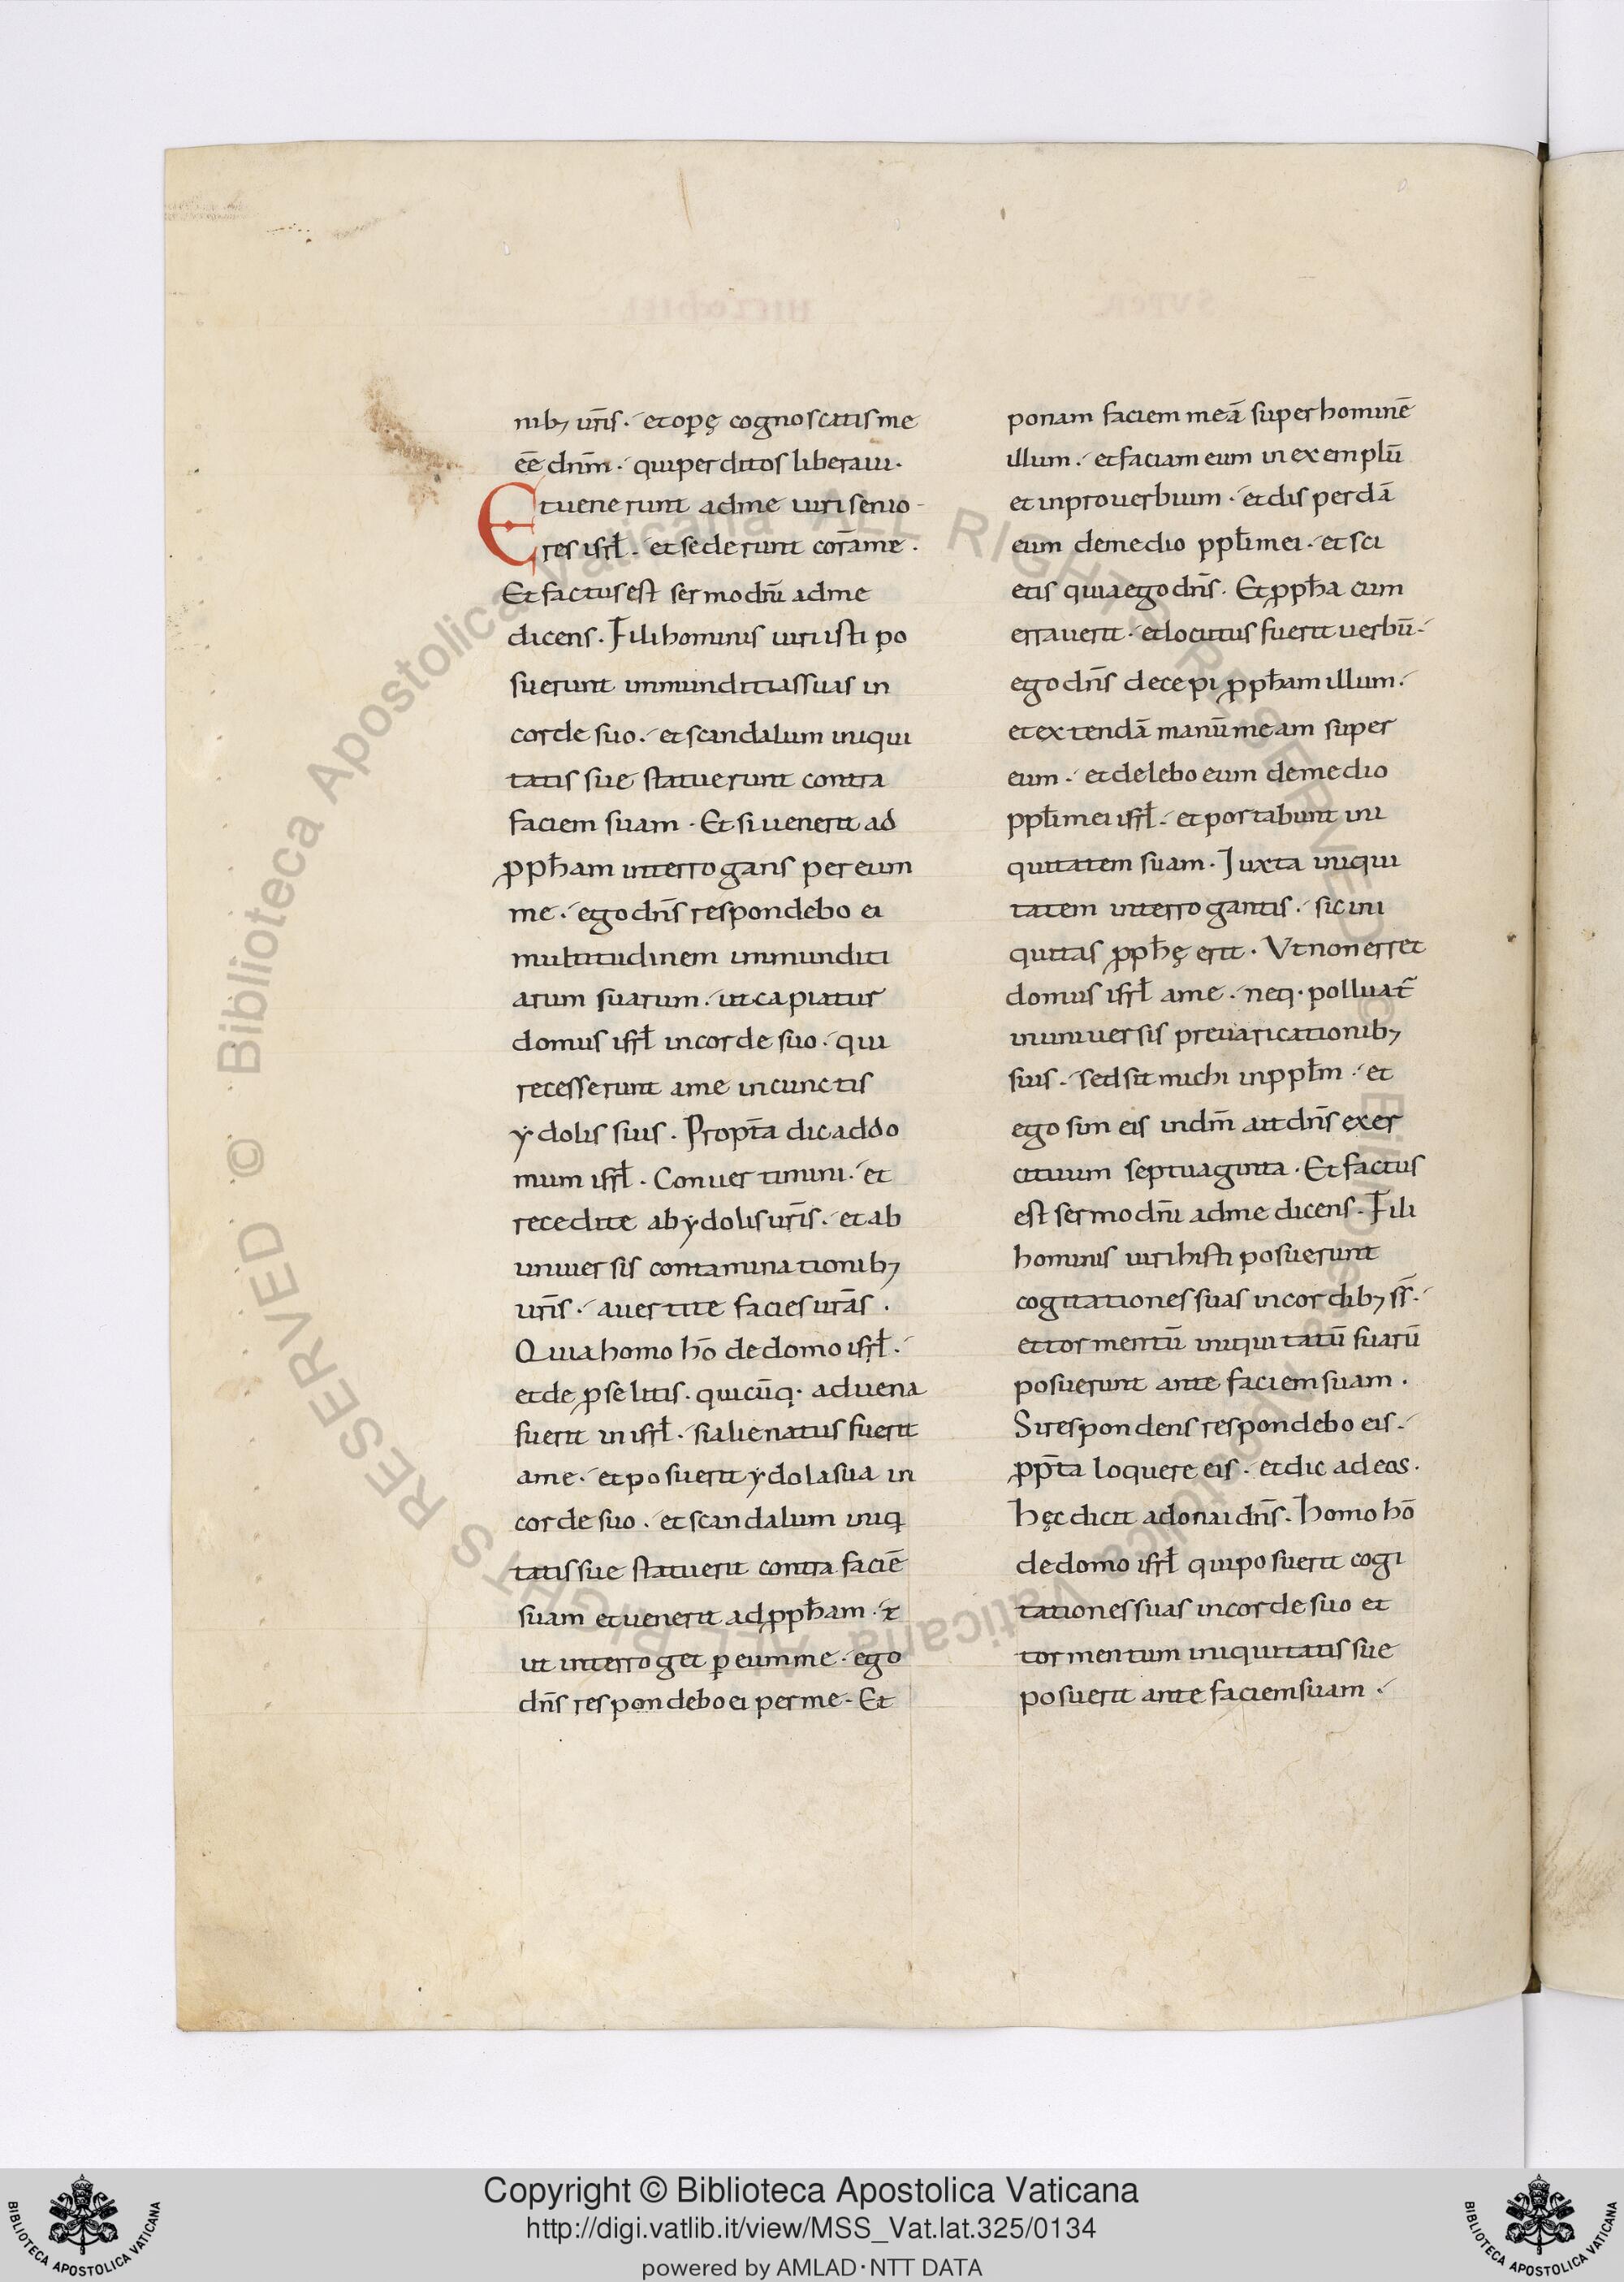 nibꝫ ur̄is. et opȩ cognoscatis me
ēē dn̄m. qui perditos liberaui.
Et uenerunt ad me uiri senio
res isrł. et sederunt cor̄a me.
Et factus est sermo dn̄i ad me
dicens. Fili hominis uiri isti po
suerunt immunditias suas in
corde suo. et scandalum iniqui
tatis sue statuerunt contra
faciem suam. Et si uenerit ad
ꝓpħam interrogans per eum
me. ego dn̄s respondebo ei
multitudinem immunditi
arum suarum. ut capiatur
domus isrł in corde suo. qui
recesserunt a me in cunctis
ydolis suis. Propt̄a dic ad do
mum isrł. Conuertimini. et
recedite ab ydolis ur̄is. et ab
uniuersis contaminationibꝫ
ur̄is. auertite facies ur̄as.
Quia homo hō de domo isrł.
et de ꝓselitis. quicūq. aduena
fuerit in isrł. si alienatus fuerit
a me. et posuerit ydola sua in
corde suo. et scandalum iniq
tatis sue statuerit contra faciē
suam et uenerit ad ꝓpħam.
ut interroget ꝑ eum me. ego
dn̄s respondebo ei per me. Et
ponam faciem meā super hominē
illum. et faciam eum in exemplū
et in prouerbium. et disperdā
eum de medio ppłi mei. et sci
etis quia ego dn̄s. Et ꝓpħa cum
errauerit. et locutus fuerit uerbū.
ego dn̄s decepi ꝓpħam illum.
et extendā manū meam super
eum. et delebo eum de medio
ppłi mei isrł. et portabunt ini
quitatem suam. Iuxta iniqui
tatem interrogantis. sic ini
quitas ꝓpħȩ erit. Vt non erret
domus isrł a me. neq. polluat̄
in uniuersis preuaricationibꝫ
suis. sed sit michi in ppłm. et
ego sim eis in dm̄ ait dn̄s exer
cituum septuaginta. Et factus
est sermo dn̄i ad me dicens. Fili
hominis uiri histi posuerunt
cogitationes suas in cordibꝫ sr̄.
et tormentū iniquitatū suarū
posuerunt ante faciem suam.
Si respondens respondebo eis.
ꝓpt̄a loquere eis. et dic ad eos.
hȩc dicit adonai dn̄s. homo hō
de domo isrł qui posuerit cogi
tationes suas in corde suo et
tormentum iniquitatis sue
posuerit ante faciem suam.
Biblioteca Apostolica Vaticana ALL RIGHTS RESERVED © Biblioteca Apostolica Vaticana ALL RIGHTS RESERVED ©
Copyright © Biblioteca Apostolica Vaticana
http://digi.vatlib.it/view/MSS_Vat.lat.325/0134
powered by AMLAD·NTT DATA
BIBLIOTECA APOSTOLICA VATICANA
BIBLIOTECA APOSTOLICA VATICANA